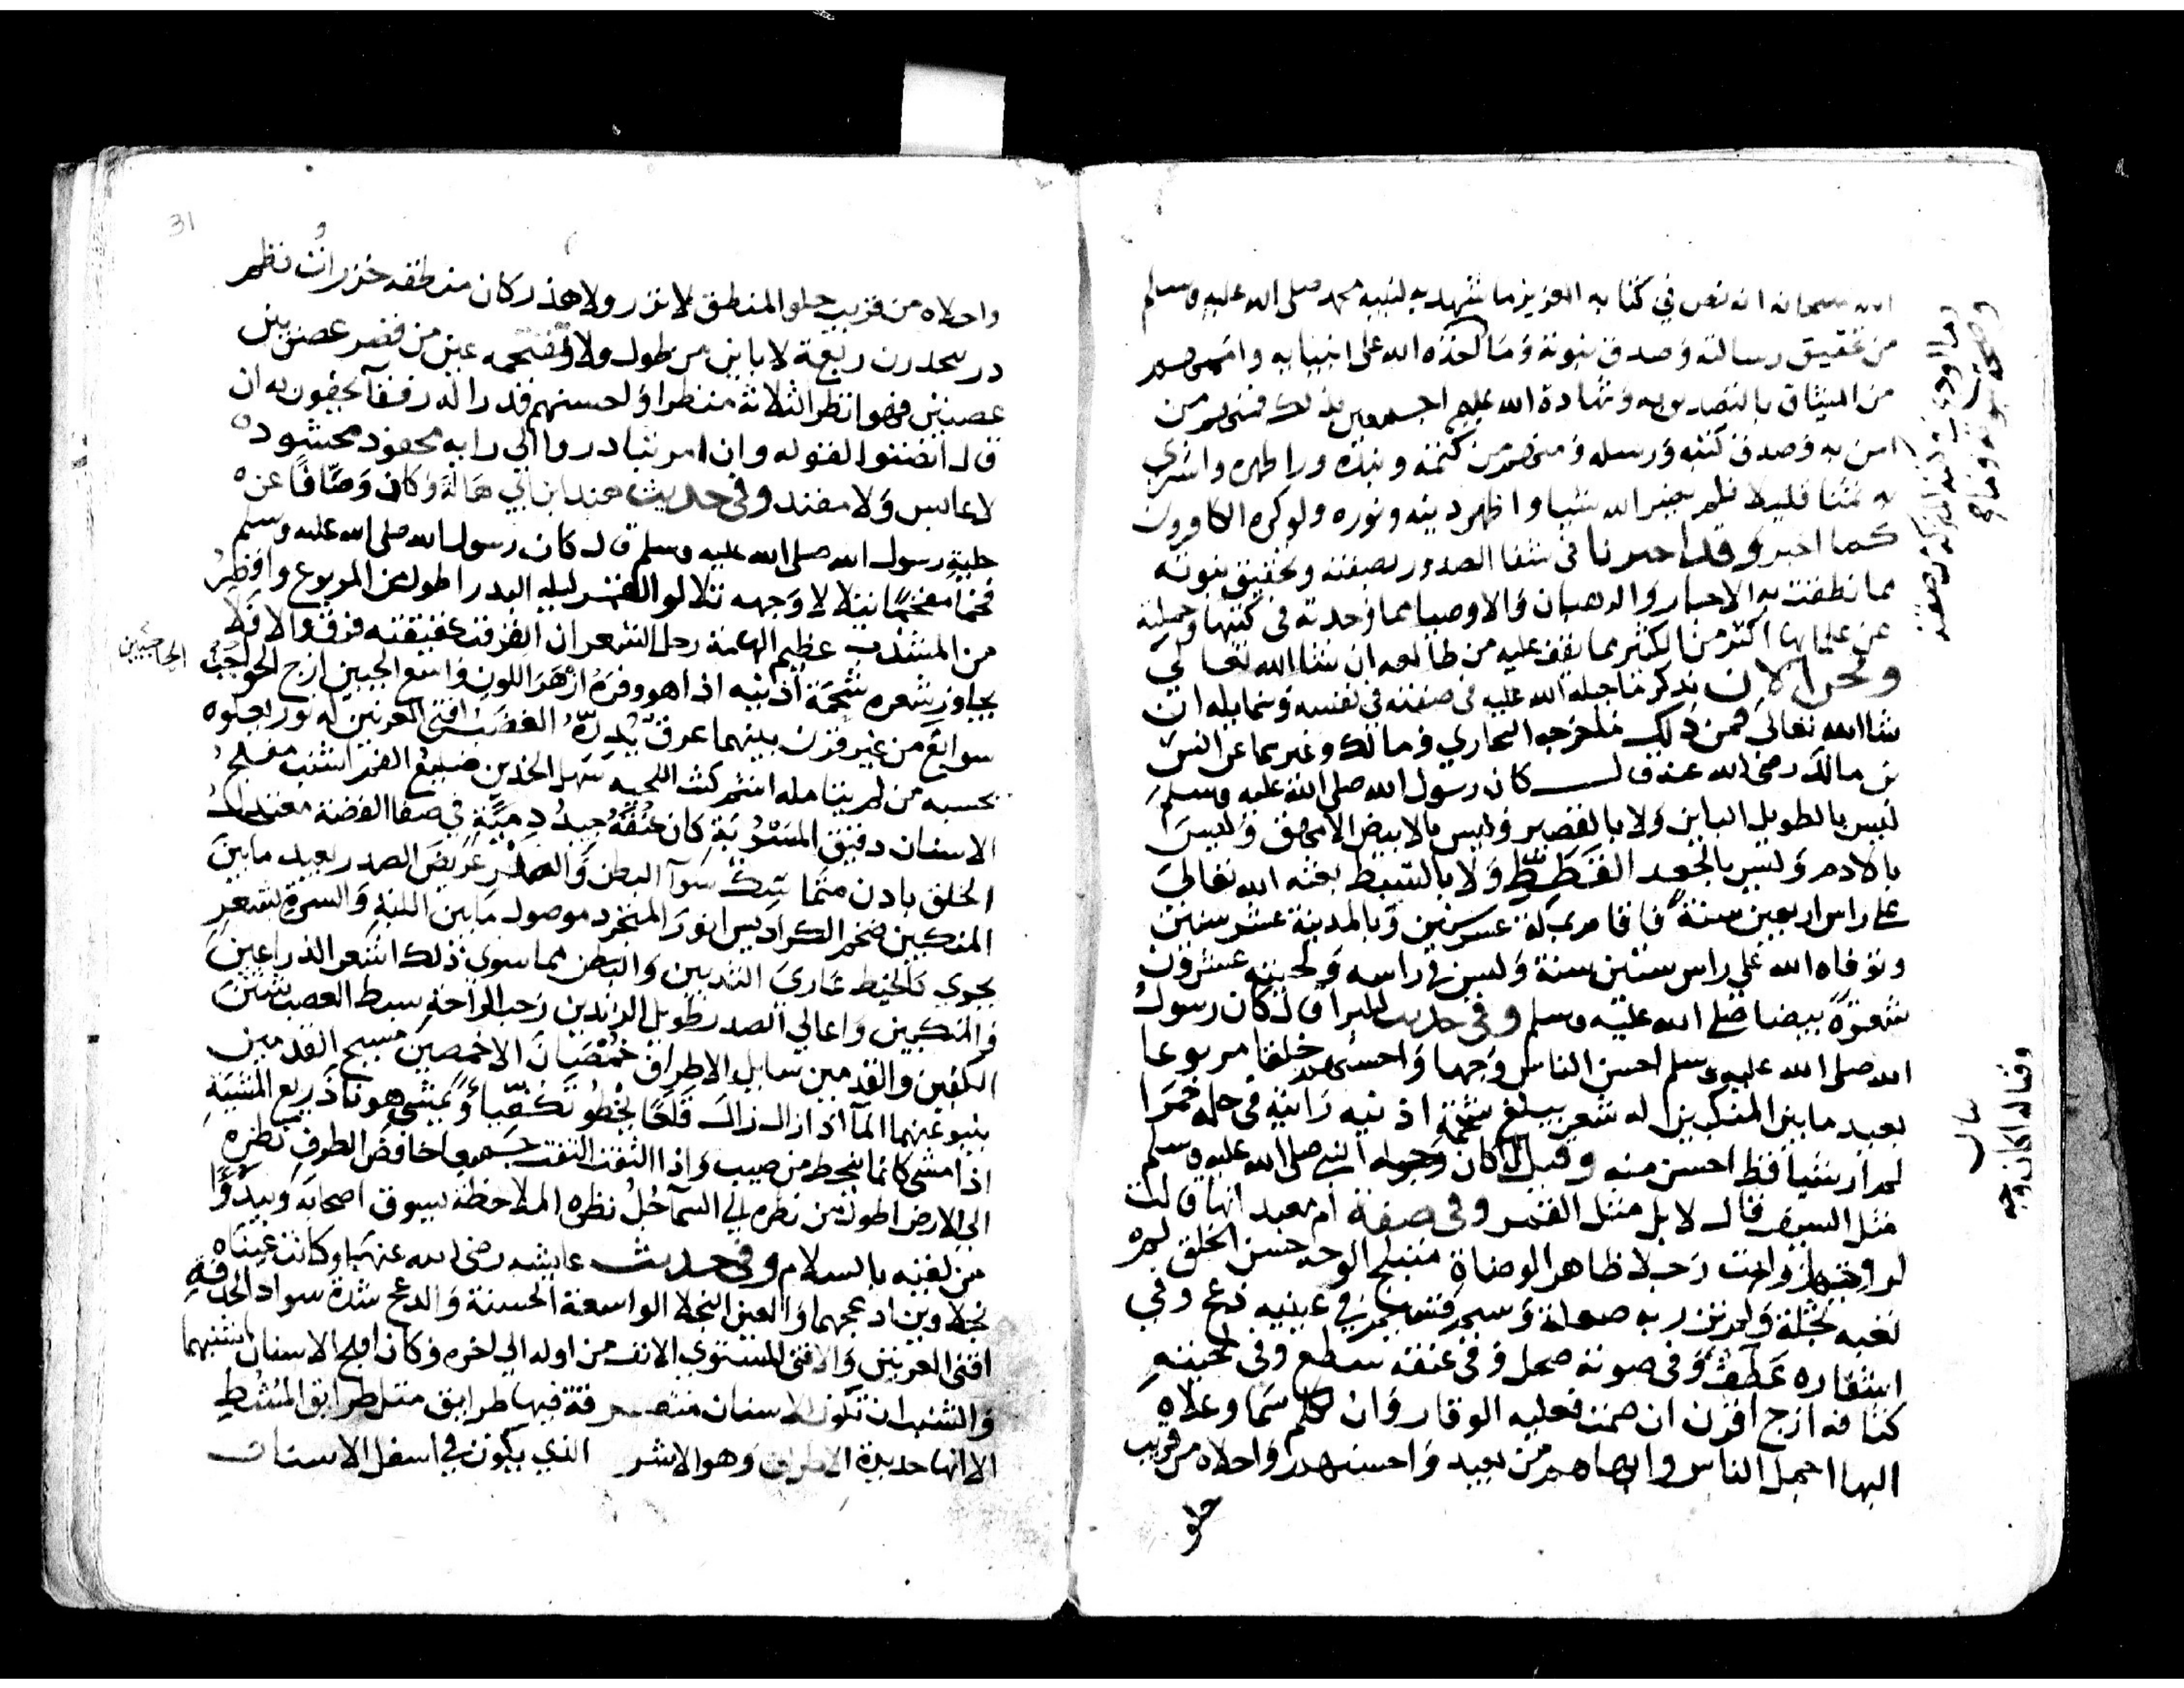 الله سبحانه انه نص في كتابه العزيز ما شهد به لنبيه محمد صلى الله عليه وسلم
من تحقيق رسالته وصدق نبوته وما اخذه الله على انبيايه واممهم
من الميثاق بالتصديق به وشهادة الله عليهم اجمعين بذلك فمنهم من
امن به وصدق كتبه ورسله ومنهم من كتمه ونبذه ورا ظهره واشترى
به ثمنا قليلا فلم يضر الله شيا واظهر دينه ونوره ولو كره الكافرون
كما اخبر وقد اخبرنا في شفا الصدور بصفته وتحقيق نبوته
مما نطقت به الاحبار والرهبان والاوصيا مما وجدته في كتبها وحملته
عن علمايها اكثر من الكثير مما يقف عليه من طالعه ان شا الله تعالى
ونحن الان نذكر ما جبله الله عليه في صفته في نفسه وشمايله ان
شا الله تعالى فمن ذلك ما خرجه البخاري ومالك وغيرهما عن انس
بن مالك رضي الله عنه قال كان رسول الله صلى الله عليه وسلم
ليس بالطويل الباين ولا بالقصير وليس بالابيض الامهق وليس
بالادم وليس بالجعد القطط ولا بالسبط بعثه الله تعالى
على راس اربعين سنة فاقام بمكة عشر سنين وبالمدينة عشر سنين
وتوفاه الله على راس ستين سنة وليس في راسه ولحيته عشرون
شعرة بيضا صلى الله عليه وسلم وفي حديث البرا قال كان رسول
الله صلى الله عليه وسلم احسن الناس وجها واحسنهم خلقا مربوعا
بعيد ما بين المنكبين له شعر يبلغ شحمة اذنيه رايته في حلة حمرا
لم ار شيا قط احسن منه وقيل له اكان وجه النبي صلى الله عليه وسلم
مثل السيف قال لا بل مثل القمر وفي صفة ام معبد انها قالت
لزوجها رايت رجلا ظاهر الوضاة متبلج الوجه حسن الخلق لم
تعبه ثجلة ولم تزر به صعلة وسيم قسيم في عينيه دعج وفي
اشفاره غطف وفي صوته صحل وفي عنقه سطع وفي لحيته
كثافه ازج اقرن ان صمت فعليه الوقار وان تكلم سما وعلاه
البها اجمل الناس وابهاهم من بعيد واحسنهم واحلاه من قريب
حلو
31
واحلاه من قريب حلو المنطق لا نزر ولا هذر كان منطقه خرزات نظم
در يتحدرن ربعة لا باين من طول ولا تقتحمه عين من قصر غصن بين
غصنين فهو انظر الثلاثة منظرا واحسنهم قدرا له رفقا يحفون به ان
قال انصتوا لقوله وان امر تبادروا الى امره محفود محشود
لا عابس ولا مفند وفي حديث هند ابن ابي هالة وكان وصافا عن
حلية رسول الله صلى الله عليه وسلم قال كان رسول الله صلى الله عليه وسلم
فخما مفخما يتلالا وجهه تلالو القمر ليله البدر اطول من المربوع واقصر
من المشذب عظيم الهامة رجل الشعر ان انفرقت عقيقته فرق والا فلا
يجاوز شعره شحمة اذنيه اذا هو وفره ازهر اللون واسع الجبين ازج الحواجب
الحاجبين
سوابغ من غير قرن بينهما عرق يدره الغضب اقنى العرنين له نور يعلوه
يحسبه من لم يتامله اشم كث اللحيه سهل الخدين ضليع الفم اشنب مفلج
الاسنان دقيق المسربة كان عنقه جيد دمية في صفا الفضة معتدل
الخلق بادن متماسك سوا البطن والصدر عريض الصدر بعيد ما بين
المنكبين ضخم الكراديس انور المتجرد موصول ما بين اللبة والسرة بشعر
يجري كالخيط عاري الثديين والبطن مما سوى ذلك اشعر الذراعين
والمنكبين واعالي الصدر طويل الزندين رحب الراحة سبط العصب شثن
الكفين والقدمين سايل الاطراف خمصان الاخمصين مسيح القدمين
ينبو عنهما الما اذا زال زال قلعا يخطو تكفيا ويمشي هونا ذريع المشية
اذا مشى كانما ينحط من صبب واذا التفت التفت جميعا خافض الطرف نظره
الى الارض اطول من نظره الى السما جل نظره الملاحظة يسوق اصحابه ويبدو
من لقيه بالسلام وفي حديث عايشه رضي الله عنها وكانت عيناه
نجلاوين ادعجهما والعين النجلا الواسعة الحسنة والدعج شدة سواد الحدقة
اقنى العرنين والاقنى المستوي الانف من اوله الى اخره وكان افلج الاسنان اشنبهما
والشنب ان تكون الاسنان متفرقة فيها طرايق مثل طرايق المشط
الا انها حديدة الاطراف وهو الاشر الذي يكون في اسفل الاسنان